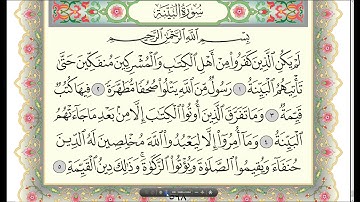 سُورَةُ الْبَيِّنَةِ
بِسْمِ اللَّهِ الرَّحْمَٰنِ الرَّحِيمِ
لَمْ يَكُنِ الَّذِينَ كَفَرُوا مِنْ أَهْلِ الْكِتَابِ وَالْمُشْرِكِينَ مُنْفَكِّينَ حَتَّىٰ
تَأْتِيَهُمُ الْبَيِّنَةُ ١ رَسُولٌ مِنَ اللَّهِ يَتْلُوا صُحُفًا مُطَهَّرَةً ٢ فِيهَا كُتُبٌ
قَيِّمَةٌ ٣ وَمَا تَفَرَّقَ الَّذِينَ أُوتُوا الْكِتَابَ إِلَّا مِنْ بَعْدِ مَا جَاءَتْهُمُ
الْبَيِّنَةُ ٤ وَمَا أُمِرُوا إِلَّا لِيَعْبُدُوا اللَّهَ مُخْلِصِينَ لَهُ الدِّينَ
حُنَفَاءَ وَيُقِيمُوا الصَّلَوٰةَ وَيُؤْتُوا الزَّكَوٰةَ وَذَٰلِكَ دِينُ الْقَيِّمَةِ ٥